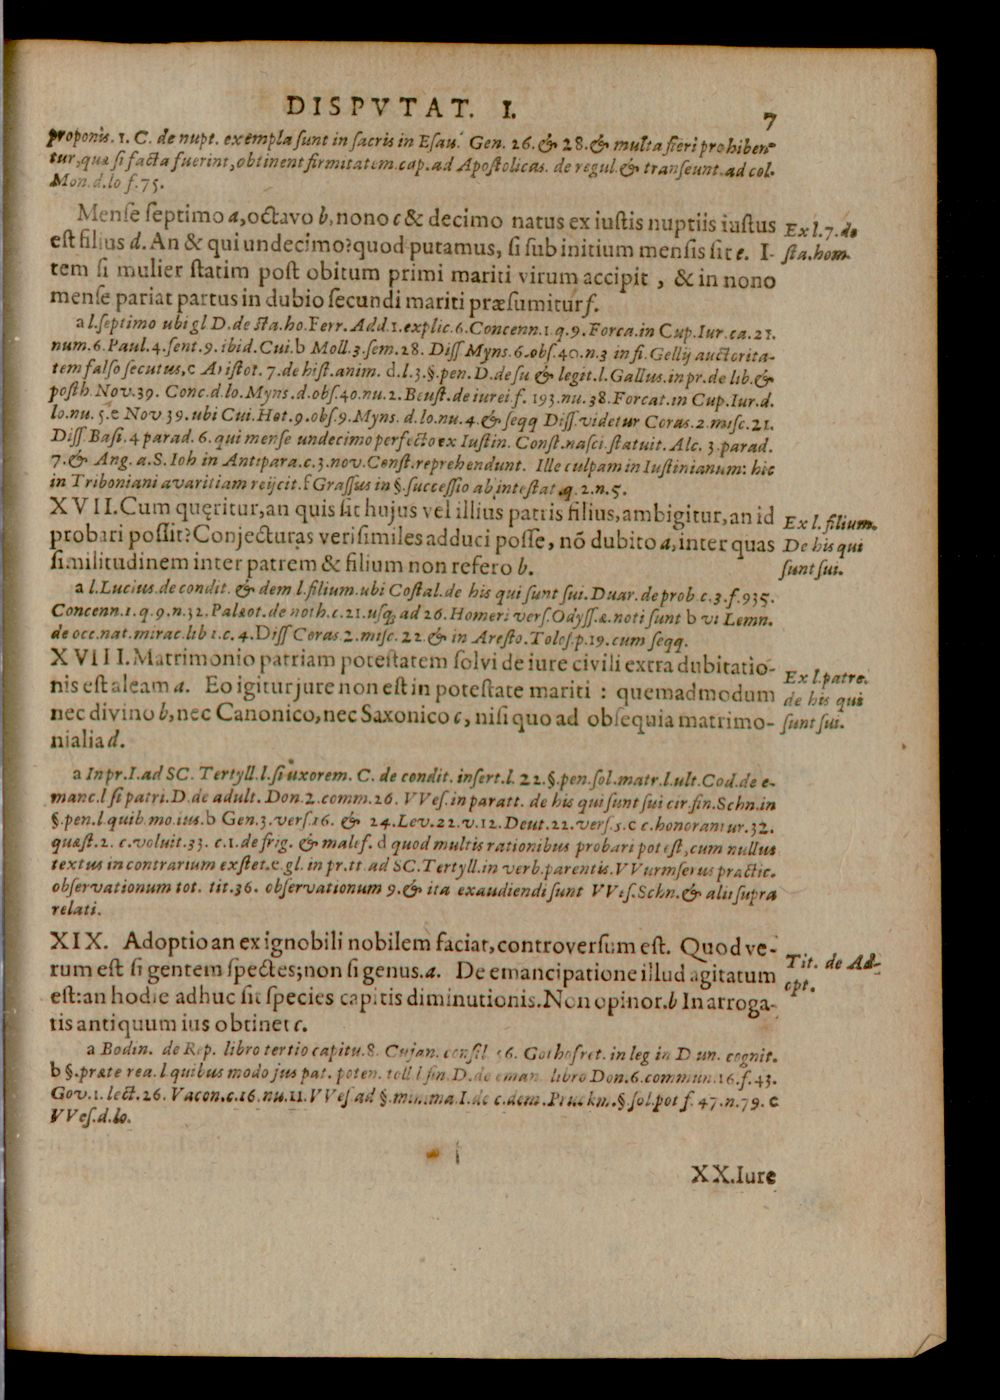 DISPVTAT. I. 7
proponis. 1. C. de nupt. exempla sunt in sacris in Esau. Gen. 26. & 28. & multa fieri prohiben-
tur, quæ si facta fuerint, obtinent firmitatem. cap. ad Apostolicas. de regul. & transeunt. ad col.
Mon. d. lo f. 75.
Mense septimo a, octavo b, nono c & decimo natus ex iustis nuptiis iustus
Ex l. 7. de
est filius d. An & qui undecimo? quod putamus, si sub initium mensis sit e. I-
sta. hom.
tem si mulier statim post obitum primi mariti virum accipit, & in nono
mense pariat partus in dubio secundi mariti præsumitur f.
a l. septimo ubi gl D. de sta. ho. Ferr. Add. 1. explic. 6. Concenn. 1. q. 9. Forca. in Cup. Iur. ca. 21.
num. 6. Paul. 4. sent. 9. ibid. Cui. b Moll. 3. sem. 28. Diss Myns. 6. obs. 40. n. 3 in fi. Gellij auctorita-
tem falso secutus, c Aristot. 7. de hist. anim. d. l. 3. §. pen. D. de su & legit. l. Gallus. in pr. de lib. &
posth. Nov. 39. Conc. d. lo. Myns. d. obs. 40. nu. 2. Beust. de iurei. f. 193. nu. 38. Forcat. in Cup. Iur. d.
lo. nu. 5. e Nov 39. ubi Cui. Hot. 9. obs. 9. Myns. d. lo. nu. 4. & seqq Diss. videtur Coras. 2. misc. 21.
Diss. Basi. 4 parad. 6. qui mense undecimo perfecto ex Iustin. Const. nasci statuit. Alc. 3. parad.
7. & Ang. a. S. Ioh in Antipara. c. 3. nov. Const. reprehendunt. Ille culpam in Iustinianum: hic
in Triboniani avaritiam reijcit. f Grassus in §. successio ab intestat. q. 2. n. 5.
XVII. Cum quęritur, an quis sit hujus vel illius patris filius, ambigitur, an id
Ex l. filium.
probari possit? Conjecturas verisimiles adduci posse, nō dubito a, inter quas
De his qui
similitudinem inter patrem & filium non refero b.
sunt sui.
a l. Lucius. de condit. & dem l. filium. ubi Costal. de his qui sunt sui. Duar. de prob. c. 3. f. 935.
Concenn. 1. q. 9. n. 32. Palæot. de noth. c. 21. usq; ad 26. Homeri vers. Odyss. α. noti sunt b vi Lemn.
de occ. nat. mirac. lib 1. c. 4. Diss Coras. 2. misc. 22. & in Aresto. Tolos. p. 19. cum seqq.
XVIII. Matrimonio patriam potestatem solvi de iure civili extra dubitatio-
Ex l. patre.
nis est aleam a. Eo igitur jure non est in potestate mariti : quemadmodum
de his qui
nec divino b, nec Canonico, nec Saxonico c, nisi quo ad obsequia matrimo-
sunt sui.
nialia d.
a In pr. I. ad SC. Tertyll. l. si uxorem. C. de condit. insert. l. 22. §. pen. sol. matr. l. ult. Cod. de e-
manc. l si patri. D. de adult. Don. 2. comm. 26. VVes. in paratt. de his qui sunt sui cir. fin. Schn. in
§. pen. l. quib. mo. ius. b Gen. 3. vers. 16. & 24. Lev. 22. v. 12. Deut. 22. vers. 5. c c. honorantur. 32.
quæst. 2. c. voluit. 33. c. 1. de frig. & malef. d quod multis rationibus probari potest, cum nullus
textus in contrarium exstet. e. gl. in pr. tt. ad SC. Tertyll. in verb. parentis. VVurmserus practic.
observationum tot. tit. 36. observationum 9. & ita exaudiendi sunt VVes. Schn. & alii supra
relati.
XIX. Adoptio an ex ignobili nobilem faciat, controversum est. Quod ve-
Tit. de Ad-
rum est si gentem spectes; non si genus. a. De emancipatione illud agitatum
opt.
est: an hodie adhuc sit species capitis diminutionis. Non opinor. b In arroga-
tis antiquum ius obtinet c.
a Bodin. de Rep. libro tertio capitu. 8. Cujan. consil 56. Gothofret. in leg in D un. cognit.
b §. præte rea. l quibus modo jus pat. poten. toll l fin. D. de eman. libro Don. 6. commun. 16. f. 43.
Gov. 1. lect. 26. Vacon. c. 16. nu. 11. VVes ad §. minima I. de c. dem. Pruckm. §. sol. pot f. 47. n. 79. c
VVes. d. lo.
XX. Iure